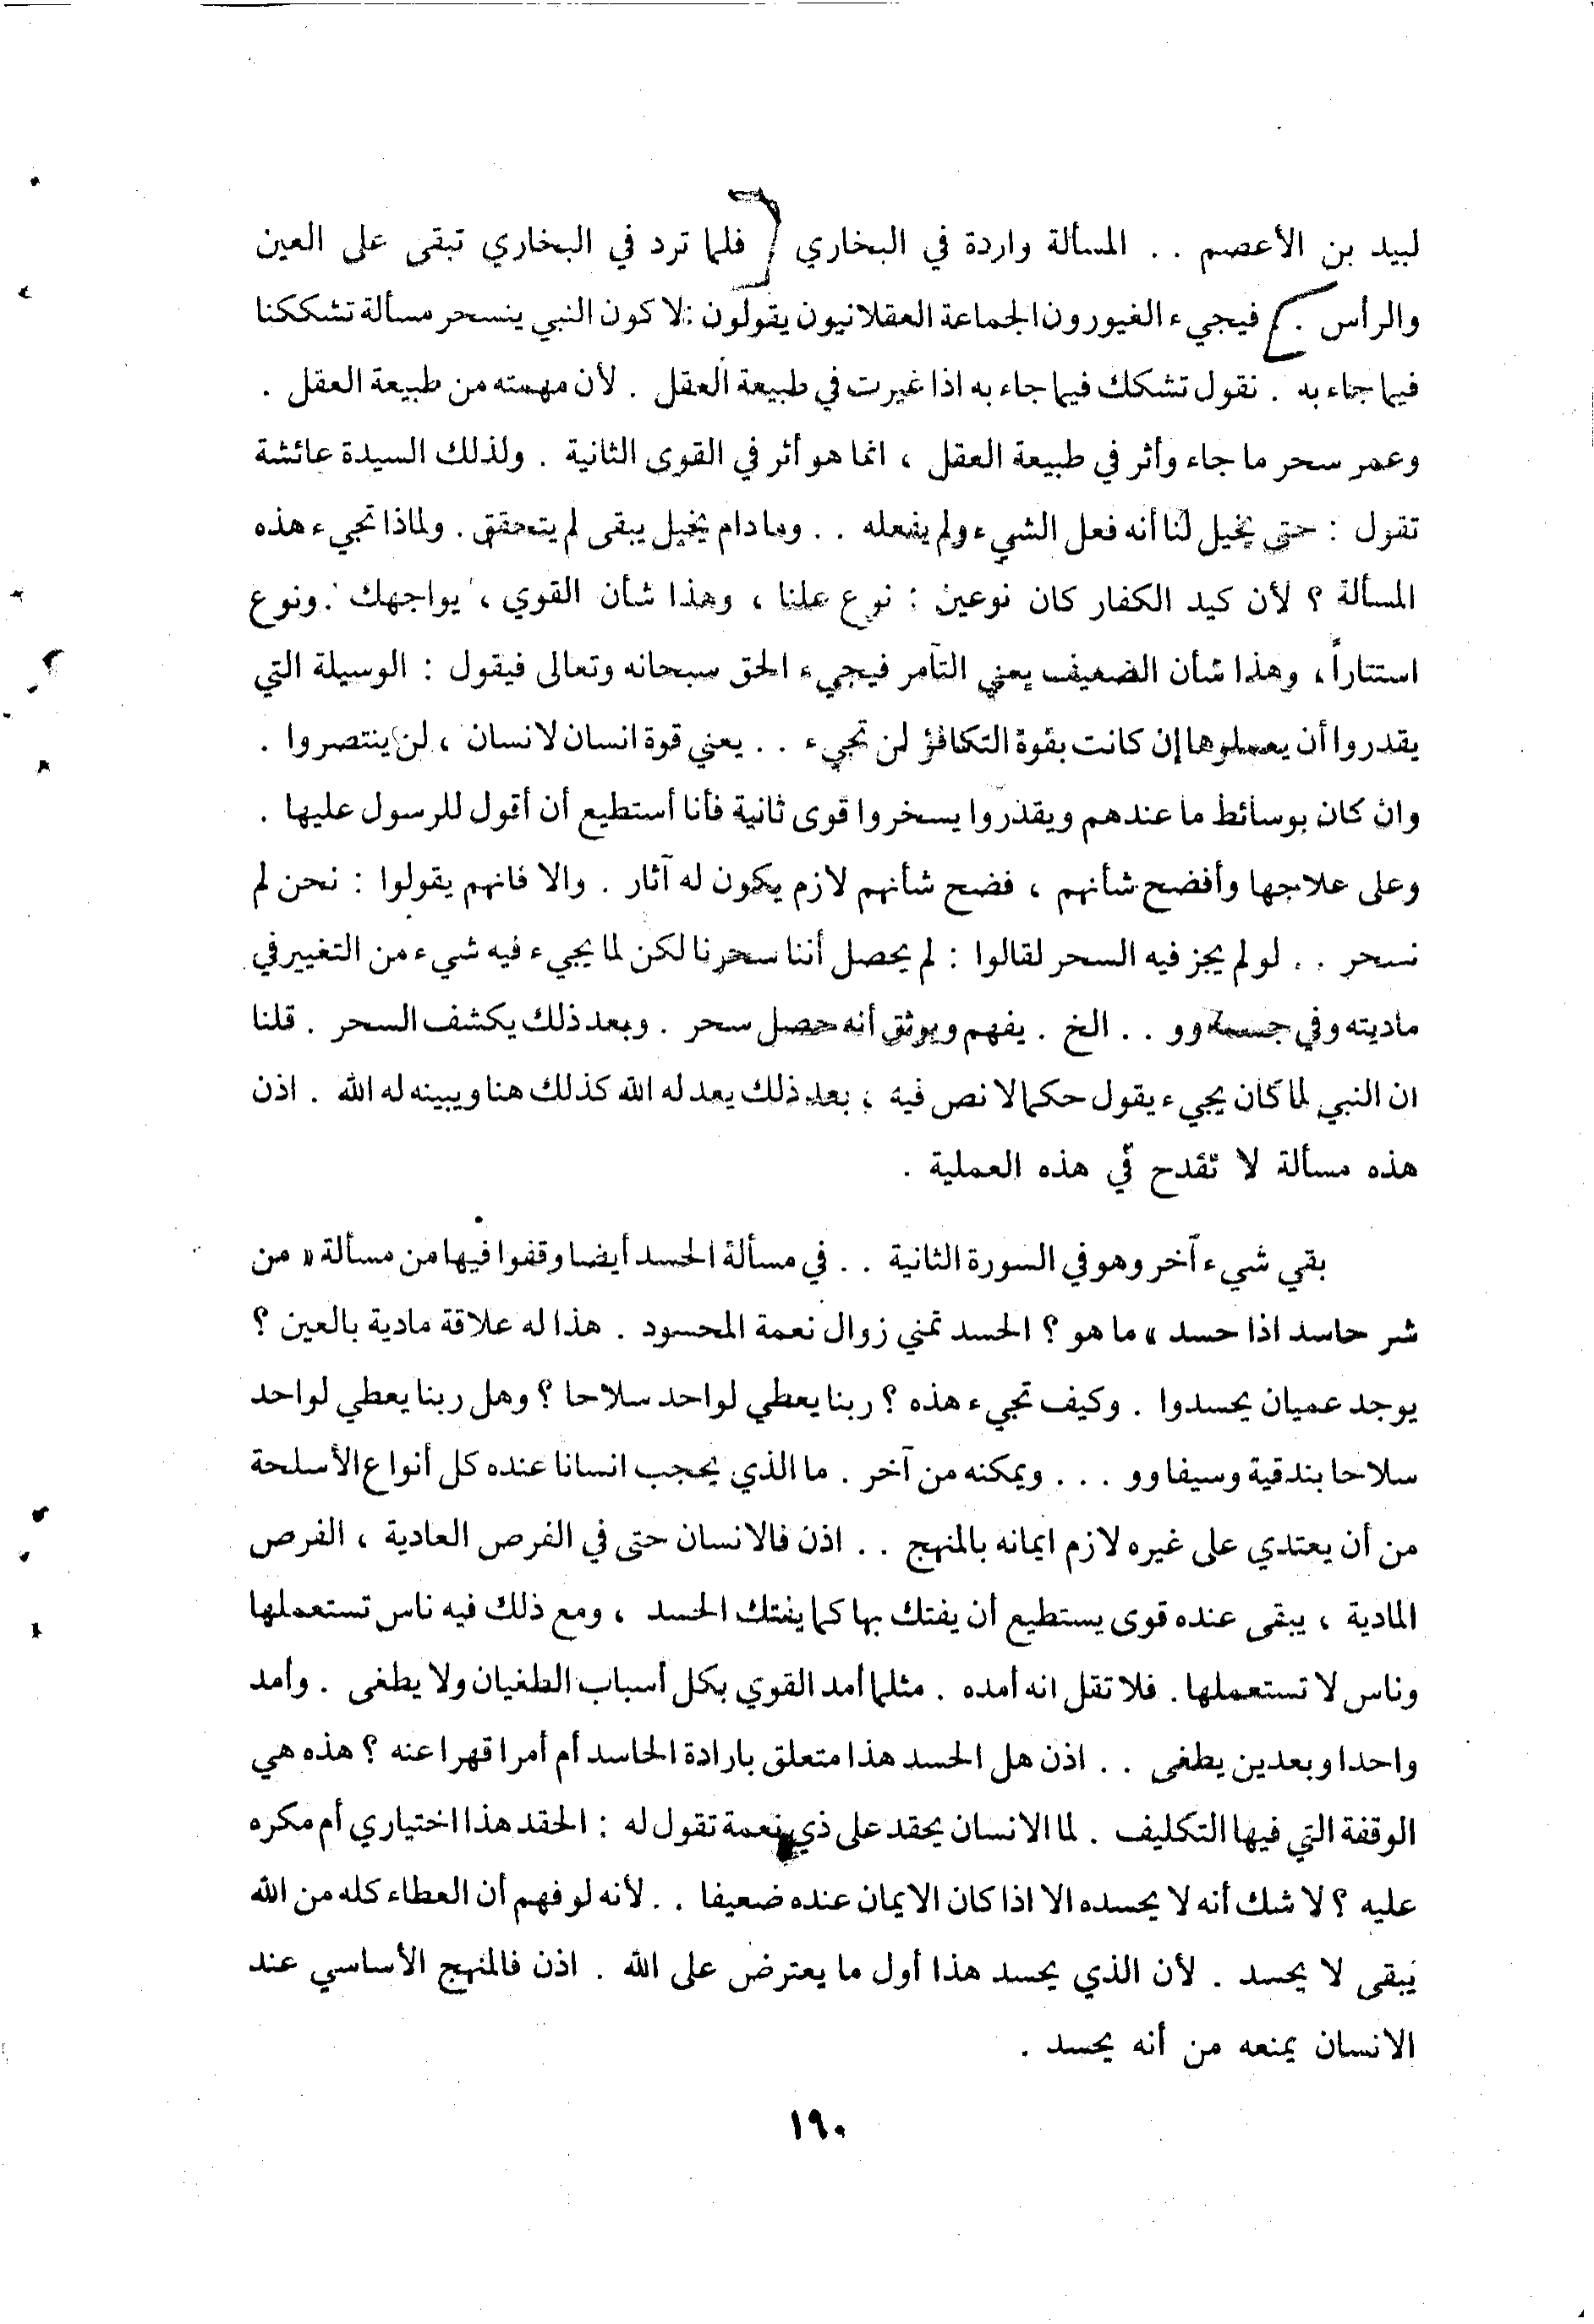 لبيد بن الأعصم . . المسألة واردة في البخاري [ فلما ترد في البخاري تبقى على العين
والرأس . ] فيجيء الغيورون الجماعة العقلانيون يقولون : لا كون النبي ينسحر مسألة تشككنا
فيما جاء به . نقول تشكك فيما جاء به اذا غيرت في طبيعة العقل . لأن مهمته من طبيعة العقل .
وعمر سحر ما جاء وأثر في طبيعة العقل ، انما هو أثر في القوى الثانية . ولذلك السيدة عائشة
تقول : حتى يخيل لنا أنه فعل الشيء ولم يفعله . . وما دام يخيل يبقى لم يتحقق . ولماذا تجيء هذه
المسألة ؟ لأن كيد الكفار كان نوعين : نوع علنا ، وهذا شأن القوي ، يواجهك . ونوع
استتاراً ، وهذا شأن الضعيف يعني التآمر فيجيء الحق سبحانه وتعالى فيقول : الوسيلة التي
يقدروا أن يعملوها إن كانت بقوة التكافؤ لن تجيء . . يعني قوة انسان لانسان ، لن ينتصروا .
وان كان بوسائط ما عندهم ويقدروا يسخروا قوى ثانية فأنا أستطيع أن أقول للرسول عليها .
وعلى علاجها وأفضح شأنهم ، فضح شأنهم لازم يكون له آثار . والا فانهم يقولوا : نحن لم
نسحر . . لو لم يجز فيه السحر لقالوا : لم يحصل أننا سحرنا لكن لما يجيء فيه شيء من التغيير في
ماديته وفي جسمه وو . . الخ . يفهم ويوثق أنه حصل سحر . وبعد ذلك يكشف السحر . قلنا
ان النبي لما كان يجيء يقول حكما لا نص فيه ، بعد ذلك يعد له الله كذلك هنا ويبينه له الله . اذن
هذه مسألة لا تقدح في هذه العملية .
بقي شيء آخر وهو في السورة الثانية . . في مسألة الحسد أيضا وقفوا فيها من مسألة « من
شر حاسد اذا حسد » ما هو ؟ الحسد تمني زوال نعمة المحسود . هذا له علاقة مادية بالعين ؟
يوجد عميان يحسدوا . وكيف تجيء هذه ؟ ربنا يعطي لواحد سلاحا ؟ وهل ربنا يعطي لواحد
سلاحا بندقية وسيفا وو . . . ويمكنه من آخر . ما الذي يحجب انسانا عنده كل أنواع الأسلحة
من أن يعتدي على غيره لازم ايمانه بالمنهج . . اذن فالانسان حتى في الفرص العادية ، الفرص
المادية ، يبقى عنده قوى يستطيع أن يفتك بها كما يفتك الحسد ، ومع ذلك فيه ناس تستعملها
وناس لا تستعملها . فلا تقل انه أمده . مثلما أمد القوي بكل أسباب الطغيان ولا يطغى . وأمد
واحدا وبعدين يطغى . . اذن هل الحسد هذا متعلق بارادة الحاسد أم أمرا قهرا عنه ؟ هذه هي
الوقفة التي فيها التكليف . لما الانسان يحقد على ذي نعمة تقول له : الحقد هذا اختياري أم مكره
عليه ؟ لا شك أنه لا يحسده الا اذا كان الايمان عنده ضعيفا . . لأنه لو فهم أن العطاء كله من الله
يبقى لا يحسد . لأن الذي يحسد هذا أول ما يعترض على الله . اذن فالمنهج الأساسي عند
الانسان يمنعه من أنه يحسد .
١٩٠